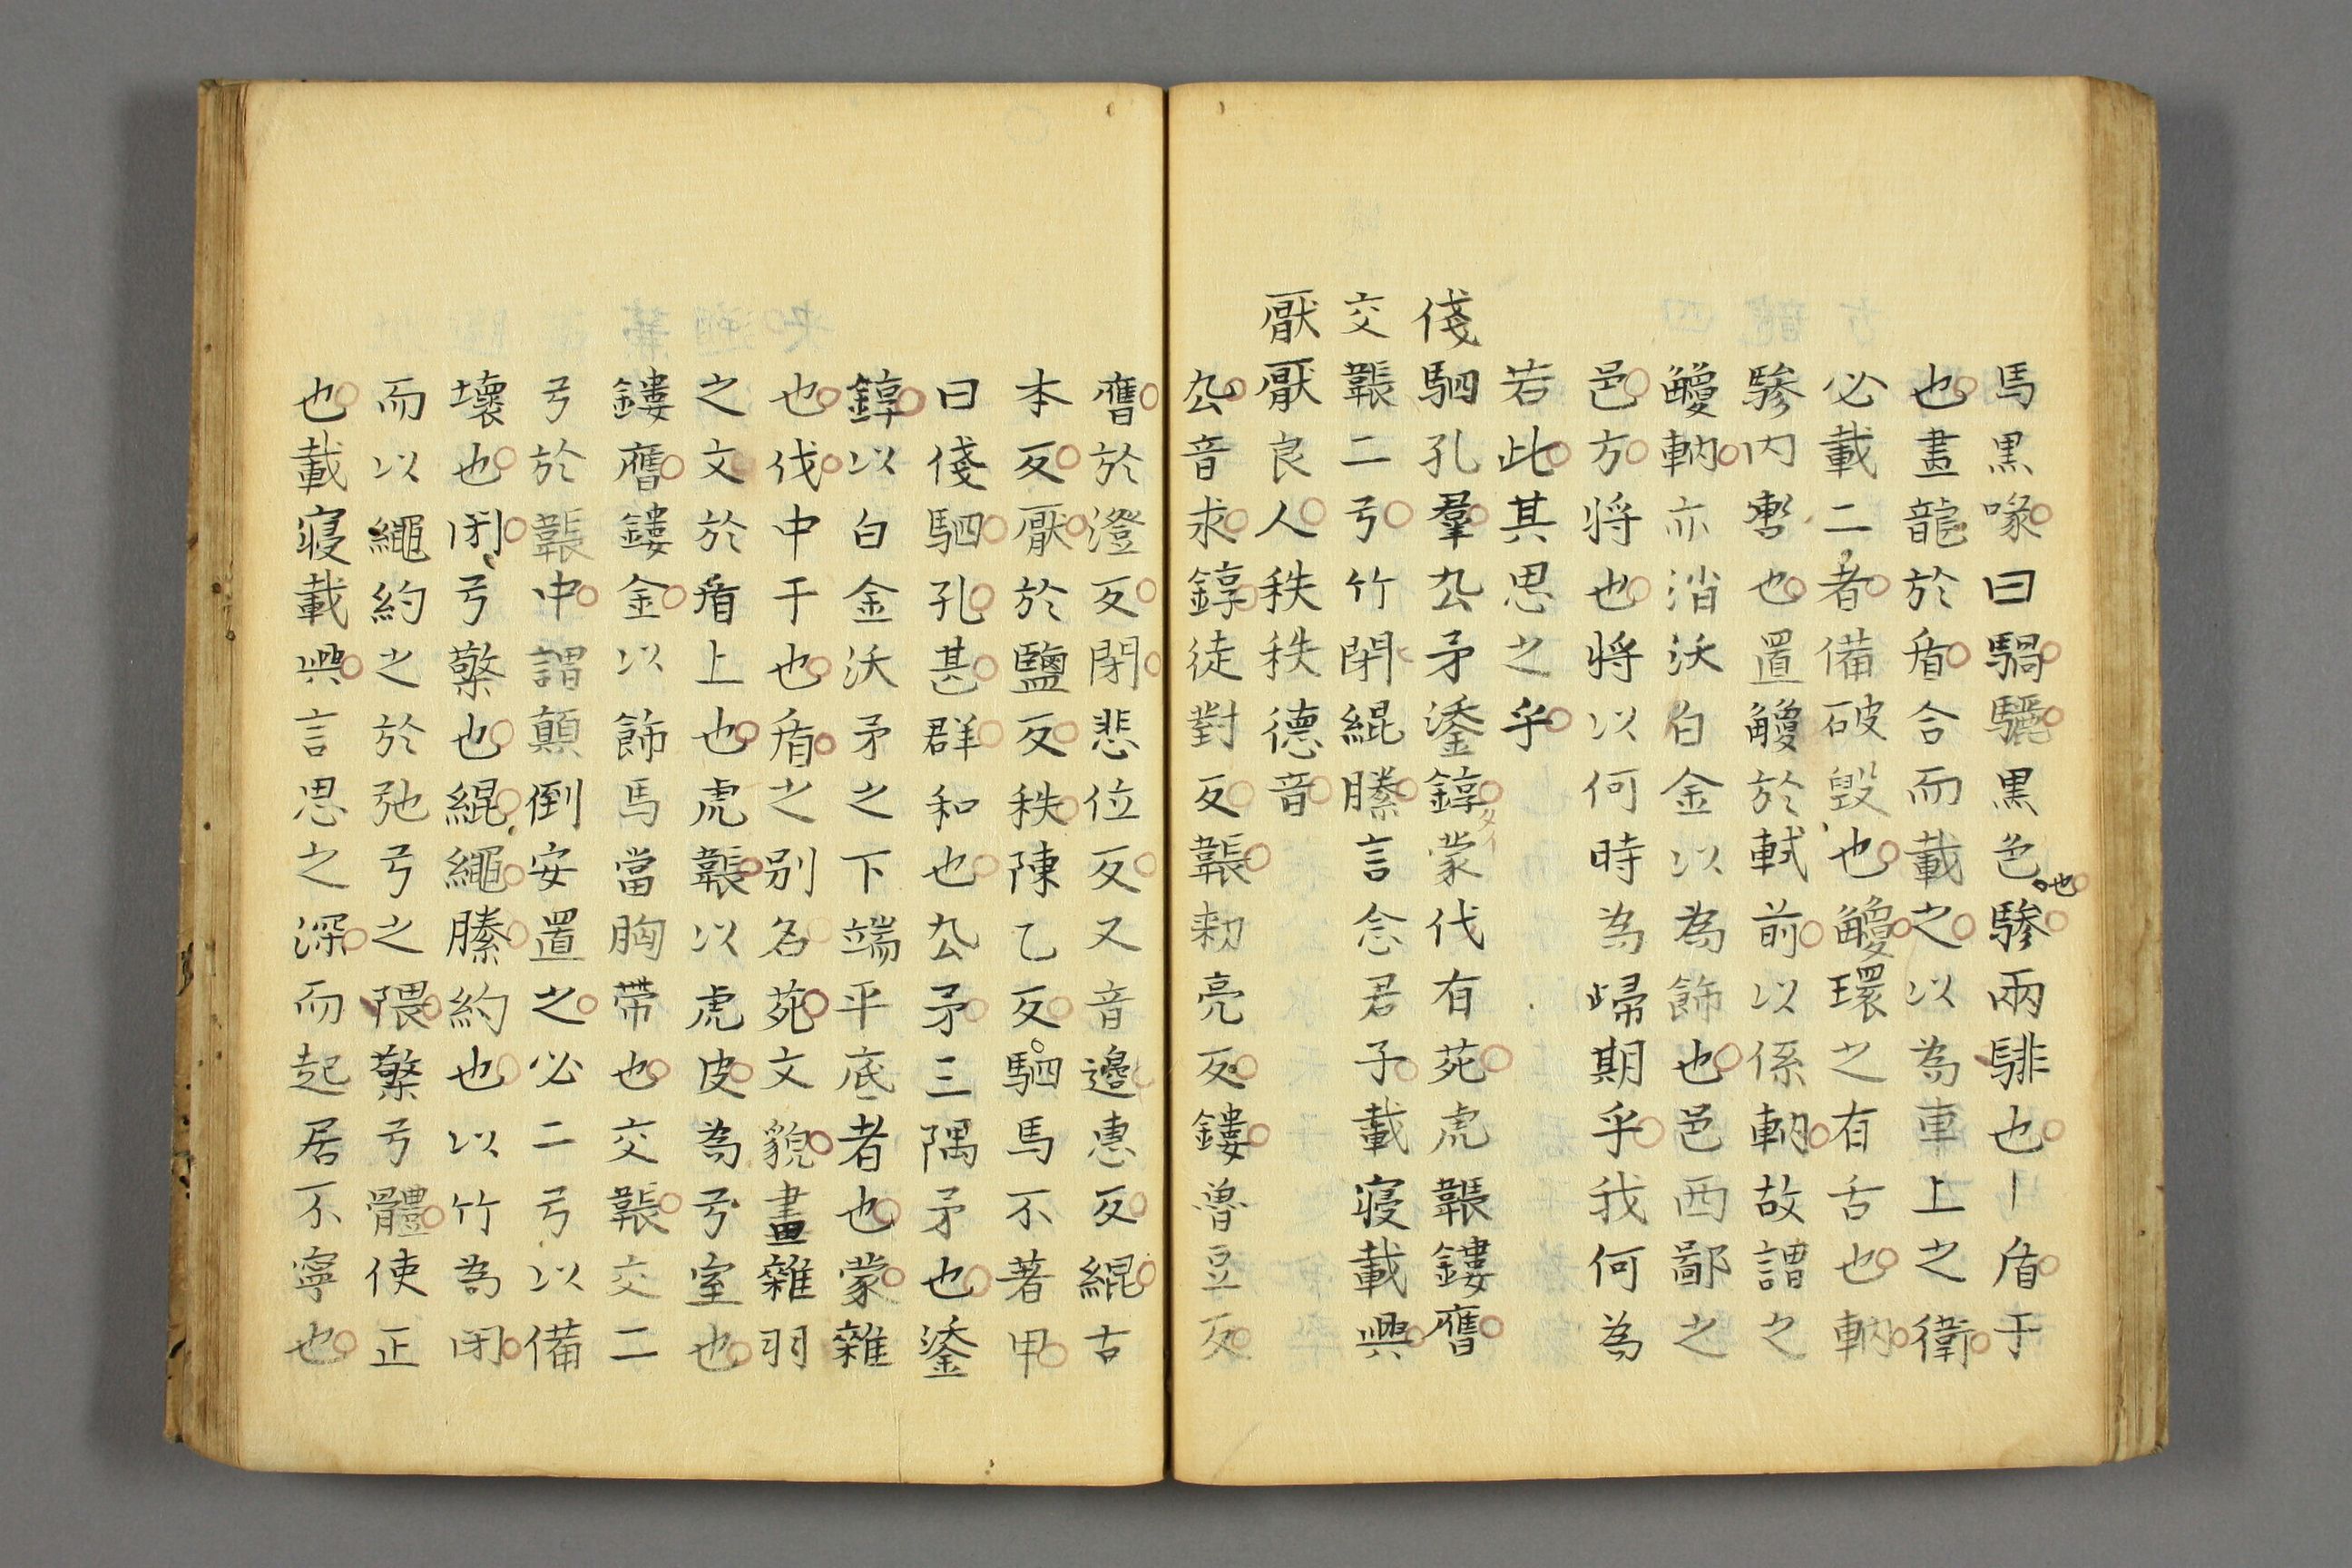 馬黒喙曰騧驪黒色也驂兩騑也｜盾于
也畫龍於盾合而載之以為車上之衛
必載二者備破毀也觼環之有舌也軜
驂内轡也置觼於軾前以係軜故謂之
觼軜亦消沃白金以為飾也邑西鄙之
邑方将也将以何時為歸期乎我何為
若此其思之乎
俴駟孔羣厹矛鋈錞タイ蒙伐有苑虎韔鏤膺
交韔二弓竹閉緄縢言念君子載寝載興
厭厭良人秩秩德音
厹音求錞徒對反韔敕亮反鏤魯豆反
膺於澄反閉悲位反又音邉恵反緄古
本反厭於鹽反秩陳乙反駟馬不著甲
曰俴駟孔甚群和也厹矛三隅矛也鋈
錞以白金沃矛之下端平底者也蒙雜
也伐中干也盾之别名苑文貌畫雜羽
之文於盾上也虎韔以虎皮為弓室也
鏤膺鏤金以飾馬當胸帶也交韔交二
弓於韔中謂顛倒安置之必二弓以備
壞也閉弓檠也緄繩縢約也以竹為閉
而以繩約之於弛弓之隈檠弓體使正
也載寝載興言思之深而起居不寧也